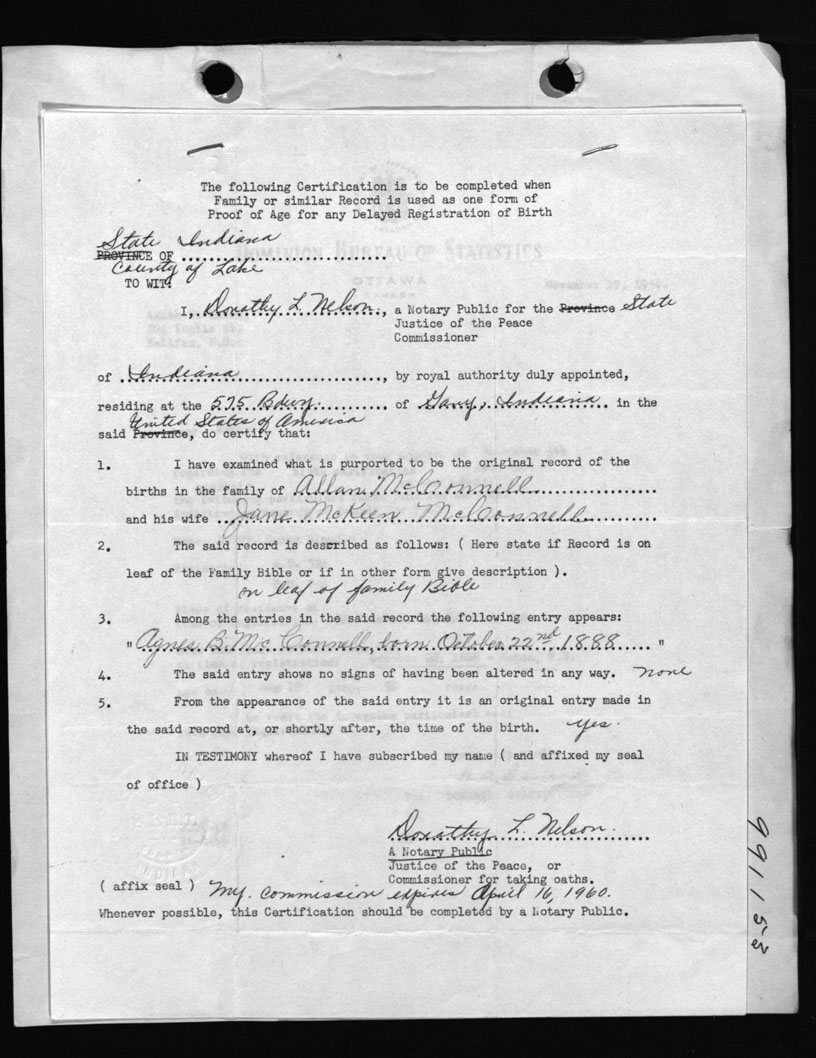 The following Certification is to be completed when
Family or similar Record is used as one form of
Proof of Age for any Delayed Registration of Birth
State Indiana
PROVINCE OF
County of Lake
TO WIT:
DOMINION BUREAU OF STATISTICS
OTTAWA
I, Dorothy L. Nelson, a Notary Public for the Province State
Justice of the Peace
Commissioner
of Indiana, by royal authority duly appointed,
residing at the 575 Bdwy. of Gary, Indiana in the
United States of America
said Province, do certify that:
1. I have examined what is purported to be the original record of the
births in the family of Allan McConnell
and his wife Jane McKeen McConnell
2. The said record is described as follows: ( Here state if Record is on
leaf of the Family Bible or if in other form give description ).
on leaf of family Bible
3. Among the entries in the said record the following entry appears:
" Agnes B. McConnell, born October 22nd 1888 "
4. The said entry shows no signs of having been altered in any way. none
5. From the appearance of the said entry it is an original entry made in
the said record at, or shortly after, the time of the birth. yes.
IN TESTIMONY whereof I have subscribed my name ( and affixed my seal
of office )
Dorothy L. Nelson.
A Notary Public
Justice of the Peace, or
Commissioner for taking oaths.
( affix seal ) My commission expires April 16, 1960.
Whenever possible, this Certification should be completed by a Notary Public.